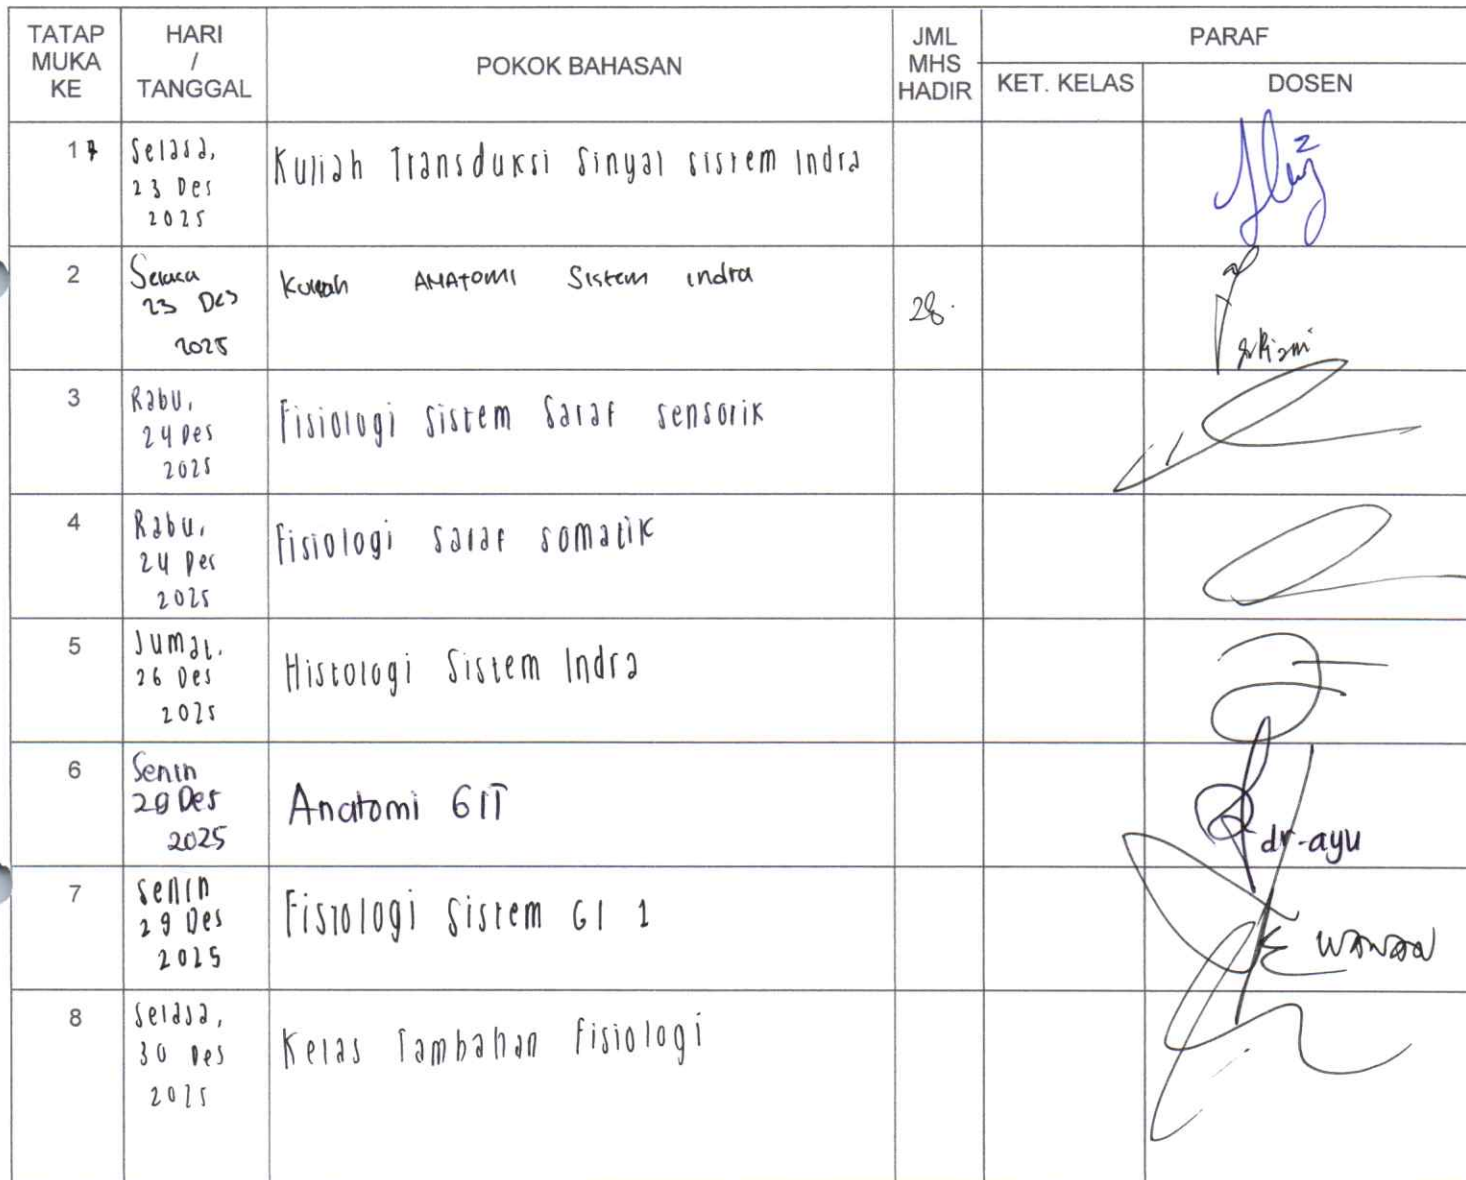 TATAP MUKA KE
HARI / TANGGAL
POKOK BAHASAN
JML MHS HADIR
PARAF
KET. KELAS
DOSEN
1
Selasa,
23 Des
2025
Kuliah Transduksi Sinyal sistem Indra
2
Selasa
23 Des
2025
Kuliah ANATOMI Sistem indra
28.
3
Rabu,
24 Des
2025
Fisiologi Sistem Saraf sensorik
4
Rabu,
24 Des
2025
Fisiologi saraf somatik
5
Jumat,
26 Des
2025
Histologi Sistem Indra
6
Senin
29 Des
2025
Anatomi GIT
dr-ayu
7
Senin
29 Des
2025
Fisiologi Sistem GI 1
WAWAN
8
Selasa,
30 Des
2025
Kelas Tambahan Fisiologi